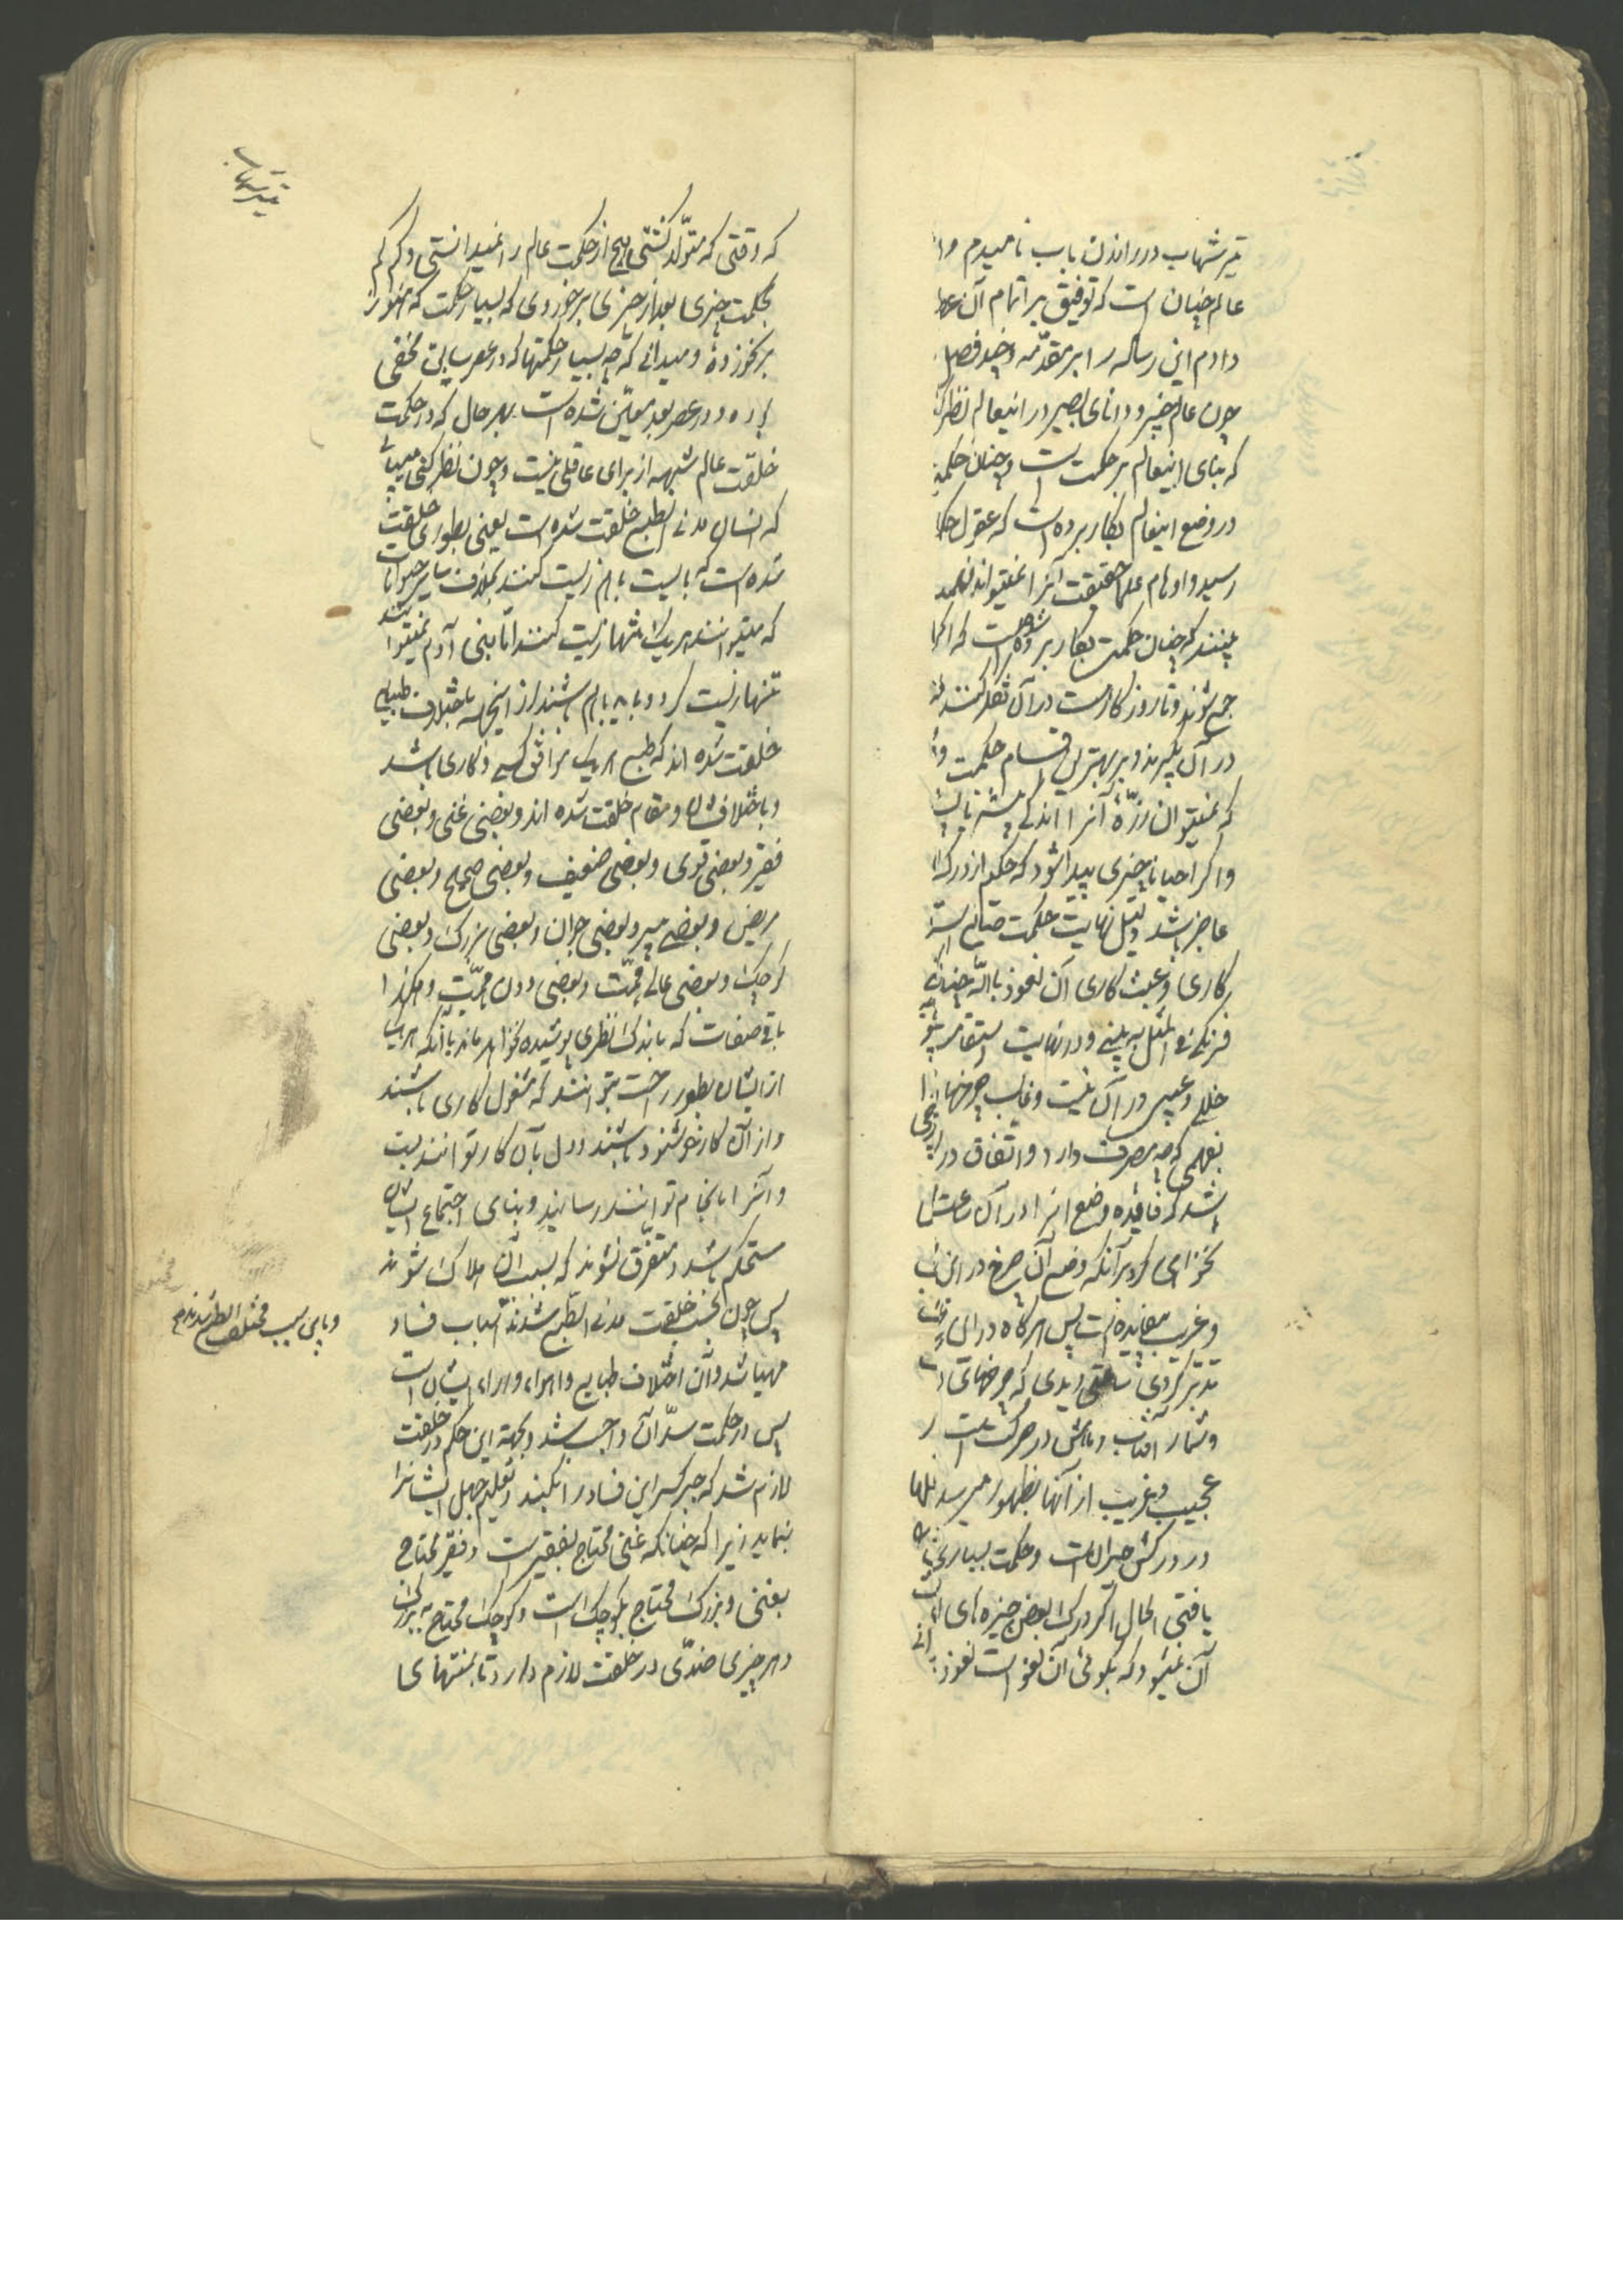 تیر شهاب در راندن باب نامیدم و از
عالم چنان است که توفیق بر اتمام آن عطا
دادم این رساله را بر مقدمه و چند فصل
چون عالم خبیر و دانای بصیر در اینعالم نظر کند
که بنای اینعالم بر حکمت است و چنان حکمتی
در وضع اینعالم بکار برده است که عقول حکما
رسید و اوهام علما حقیقت آنرا نمیتواند فهمید
بینند که چنان حکمت بکار برده شده است که اگر
جمع شوند و تا روزگار است در آن تفکر کنند
در آن بگیرند و بر بهترین اقسام حکمت
که نمیتوان ذرّهٔ آنرا اندکی پیش یا پس
و اگر احیانا چیزی پیدا شود که حکیم از درک آن
عاجز باشد دلیل نهایت حکمت صانع است
کاری و عبث کاری آن نعوذ بالله چنانکه
فرنگی فی المثل به بینی و در نهایت استقامت
خللی و عیبی در آن نیست و غالب چرخهای آنرا
بفهمی که چه مصرف دارد و اتفاق در آن چرخی
باشد که فایده وضع آنرا در آن ساعت
نخواهی کرد بر آنکه وضع آن چرخ در این
و غریب بیفایده است پس هرگاه در این
تدبر کردی دیدی که چرخهای
و شمار آفتاب و ماهش در حرکت است
عجیب و غریب از آنها بظهور میرسد
در درکش حیران است و حکمت بسیاری
یافتی الحال اگر درک بعض چیزهای
آن نمیشود که بگوئی آن لغو است نعوذ
که وقتی که متولّد گشتی هیچ از حکمت عالم را نمیدانستی و کم کم
بحکمت چیزی بعد از چیزی برخوردی که بسیار حکمت که هنوز
برنخورده و میدانی که چه بسیار حکمتها که در عصر سابق مخفی
بوده و در عصر بعد معیّن شده است بهر حال که در حکمت
خلقت عالم شبهه از برای عاقلی نیست و چون نظر کنی میبینی
که انسان مدنی الطبع خلقت شده است یعنی بطوری خلقت
شده است که بایست با هم زیست کنند بخلاف سایر حیوانات
که میتوانند هر یک تنها زیست کنند اما بنی آدم نمیتوانند
تنها زیست کرد و باید با هم باشند از اینجهت باختلاف طبایع
خلقت شده اند که طبع هر یک موافق کسبی و کاری باشد
و باختلاف شان و مقام خلقت شده اند و بعضی غنی و بعضی
فقیر و بعضی قوی و بعضی ضعیف و بعضی صحیح و بعضی
مریض و بعضی پیر و بعضی جوان و بعضی بزرگ و بعضی
کوچک و بعضی عالی همّت و بعضی دون همّت و هکذا
باقی صفات که باندک نظری پوشیده نخواهد ماند با آنکه هر یک
از ایشان بطور راحت بتوانند که مشغول کاری باشند
و از آن کار خوشنود باشند و دل بآن کار توانند بست
و آنرا بانجام توانند رسانید و بنای اجتماع ایشان
مستحکم باشد و متفرّق نشوند که بسبب آن هلاک شوند
پس چون بحسب خلقت مدنی الطبع شدند اسباب فساد
مهیا شد و آن اختلاف طبایع و اهواء و آراء ایشان است
پس در حکمت سدّ آن واجب شد و بجهة این حکم در خلقت
لازم شد که جبر کسر این فساد را بکنند و تعلیم جهل ایشانرا
بنماید زیرا که چنانکه غنی محتاج بفقیر است و فقیر محتاج
بغنی و بزرگ محتاج بکوچک است و کوچک محتاج به بزرگ
و هر چیزی ضدّی در خلقت لازم دارد تا بمنتهای
و باین سبب مختلف الطبع شدند